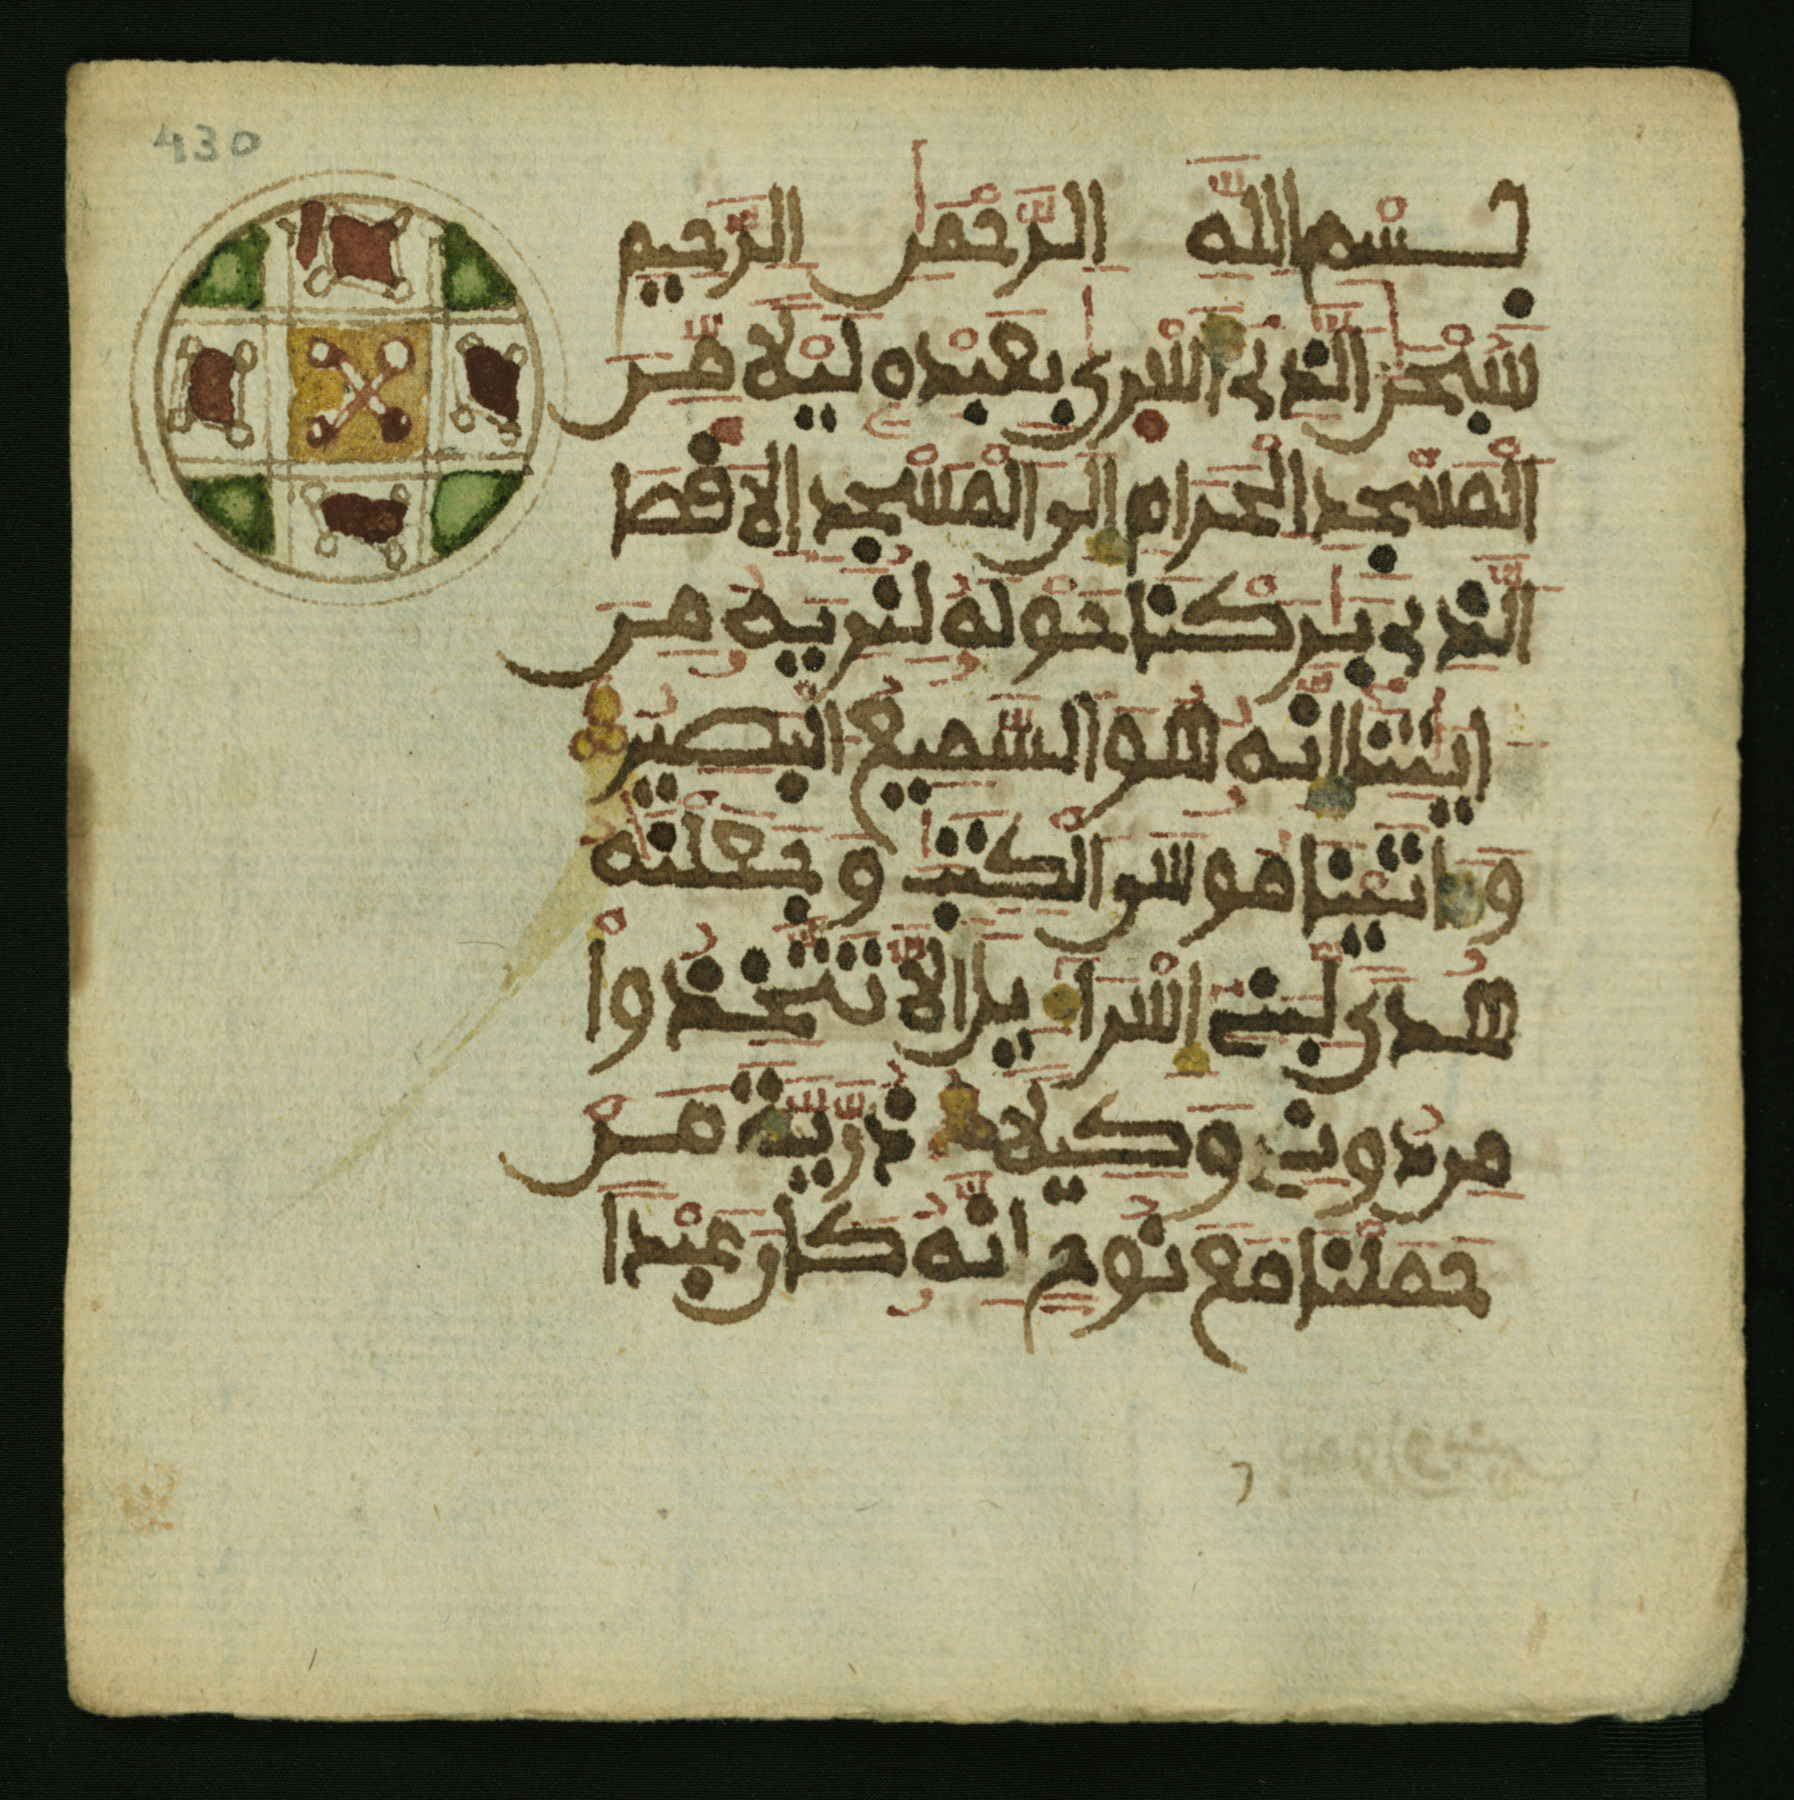 430
بسم الله الرحمن الرحيم
سبحن الذى اسرى بعبده ليلا من
المسجد الحرام الى المسجد الاقصا
الذى بركنا حوله لنريه من
ايتنا انه هو السميع البصير
واتينا موسى الكتب وجعلنه
هدى لبنى اسرايل الا تتخذوا
من دونى وكيلا ذرية من
حملنا مع نوح انه كان عبدا